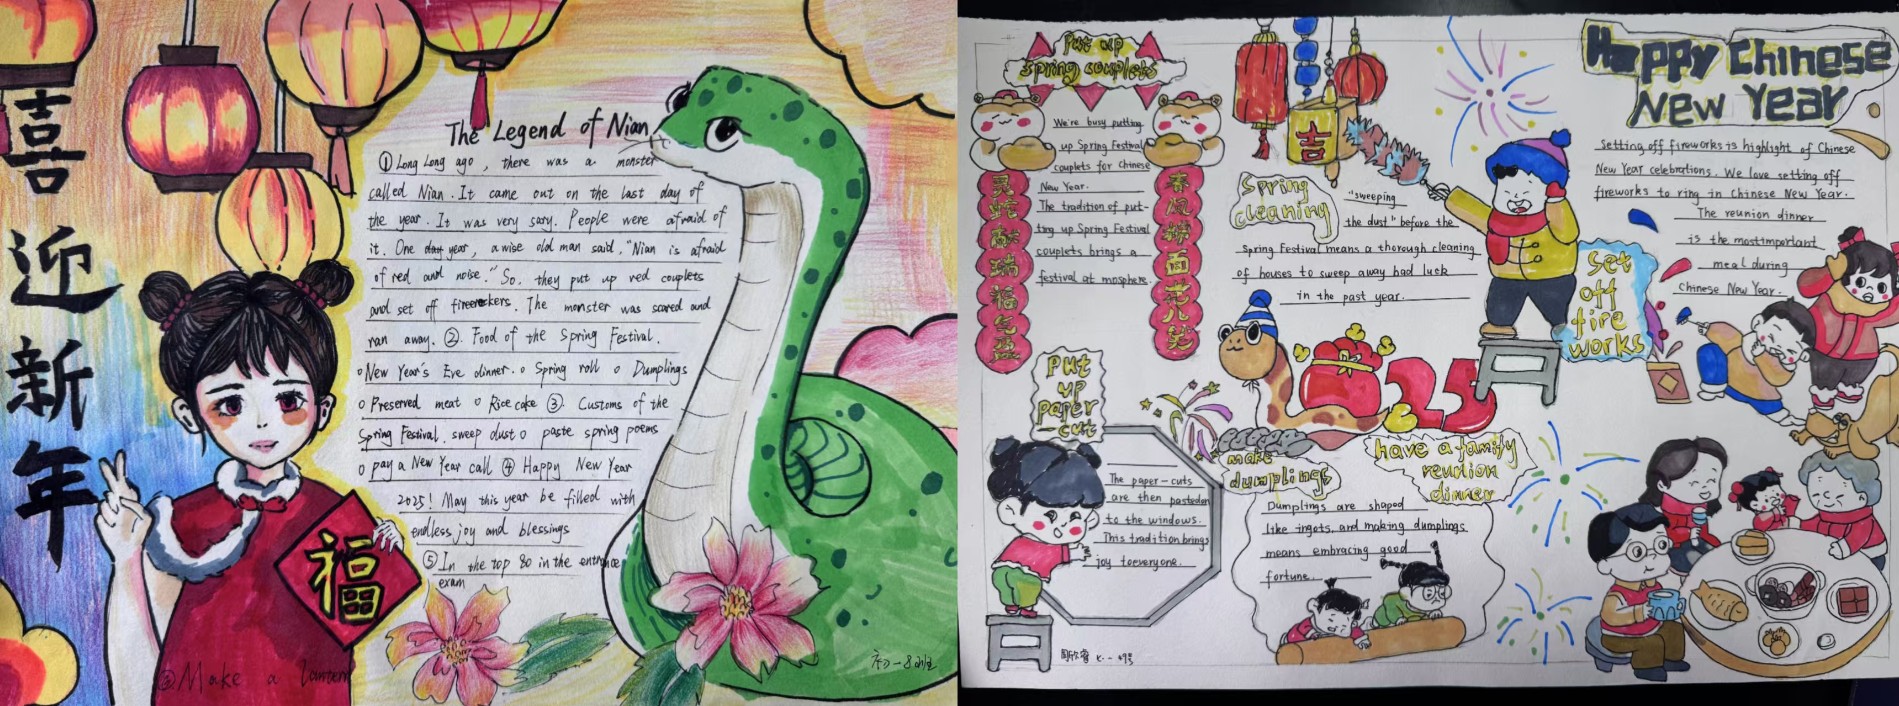 喜迎新年
The Legend of Nian
① Long Long ago, there was a monster
called Nian. It came out on the last day of
the year. It was very sary. People were afraid of
it. One day year, a wise old man said, "Nian is afraid
of red and noise." So, they put up red couplets
and set off firecrekers. The monster was scared and
ran away. ② Food of the Spring Festival.
o New Year's Eve dinner. o Spring roll o Dumplings
o Preserved meat o Rice cake ③. Customs of the
Spring Festival. sweep dust o paste spring poems
o pay a New Year call ④ Happy New Year
2025! May this year be filled with
endless joy and blessings
⑤ In the top 80 in the entrance
exam
福
Make a lantern
Put up
spring couplets
We're busy putting
up Spring Festival
couplets for Chinese
New Year.
The tradition of put-
ting up Spring Festival
couplets brings a
festival at mosphere.
灵蛇献瑞福气盈
春风拂面花儿笑
吉
Spring
cleaning
"sweeping
the dust" before the
Spring Festival means a thorough cleaning
of houses to sweep away bad luck
in the past year.
Happy Chinese
New Year
Setting off fireworks is highlight of Chinese
New Year celebrations. We love setting off
fireworks to ring in Chinese New Year.
The reunion dinner
is the mostimportant
meal during
Chinese New Year.
Set
off
fire
works
25
Put
up
paper
-cut
The paper-cuts
are then pasteden
to the windows.
This tradition brings
joy toeveryone.
make
dumplings
Dumplings are shaped
like ingots, and making dumplings
means embracing good
fortune.
have a family
reunion
dinner